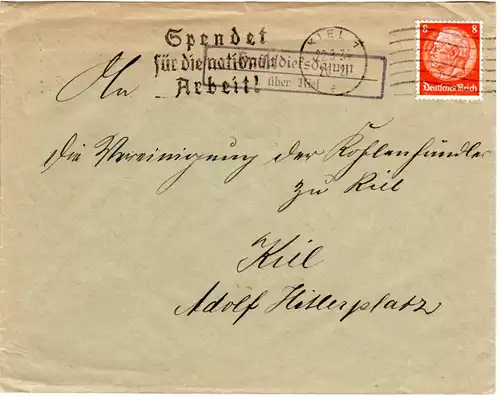 Spendet
für die nationale
Arbeit!
KIEL 1
über Kiel
8 8
Deutsches Reich
An
die Vereinigung der Kohlenhändler
zu Kiel
Kiel
Adolf Hitlerplatz